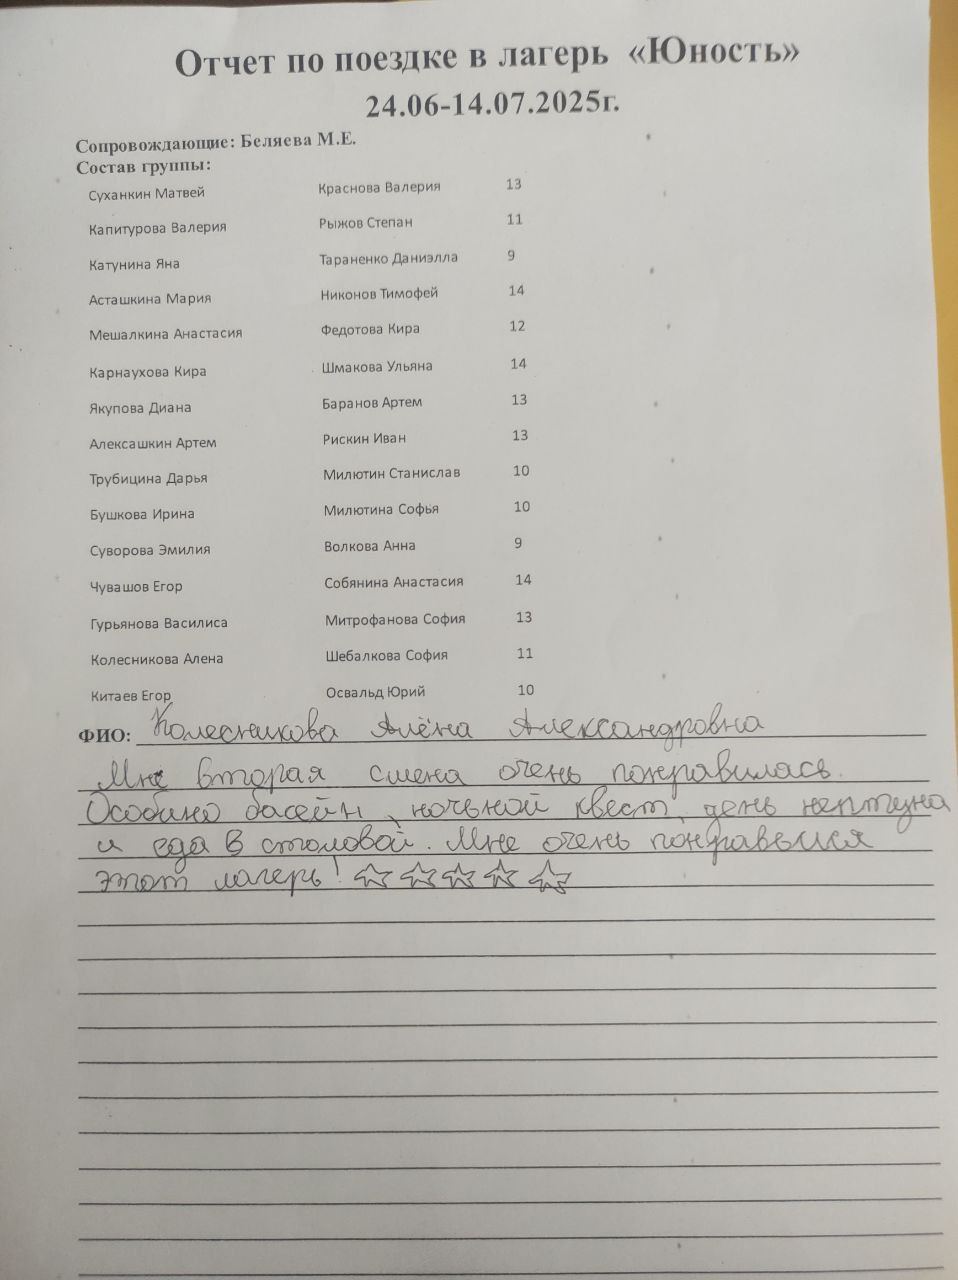 Отчет по поездке в лагерь «Юность»
24.06-14.07.2025г.
Сопровождающие: Беляева М.Е.
Состав группы:
Суханкин Матвей Краснова Валерия 13
Капитурова Валерия Рыжов Степан 11
Катунина Яна Тараненко Даниэлла 9
Асташкина Мария Никонов Тимофей 14
Мешалкина Анастасия Федотова Кира 12
Карнаухова Кира Шмакова Ульяна 14
Якупова Диана Баранов Артем 13
Алексашкин Артем Рискин Иван 13
Трубицина Дарья Милютин Станислав 10
Бушкова Ирина Милютина Софья 10
Суворова Эмилия Волкова Анна 9
Чувашов Егор Собянина Анастасия 14
Гурьянова Василиса Митрофанова София 13
Колесникова Алена Шебалкова София 11
Китаев Егор Освальд Юрий 10
ФИО: Колесникова Алёна Александровна
Мне вторая смена очень понравилась.
Особино басейн, ночьной квест, день нептуна
и еда в столовой. Мне очень понравылся
этот лагерь!